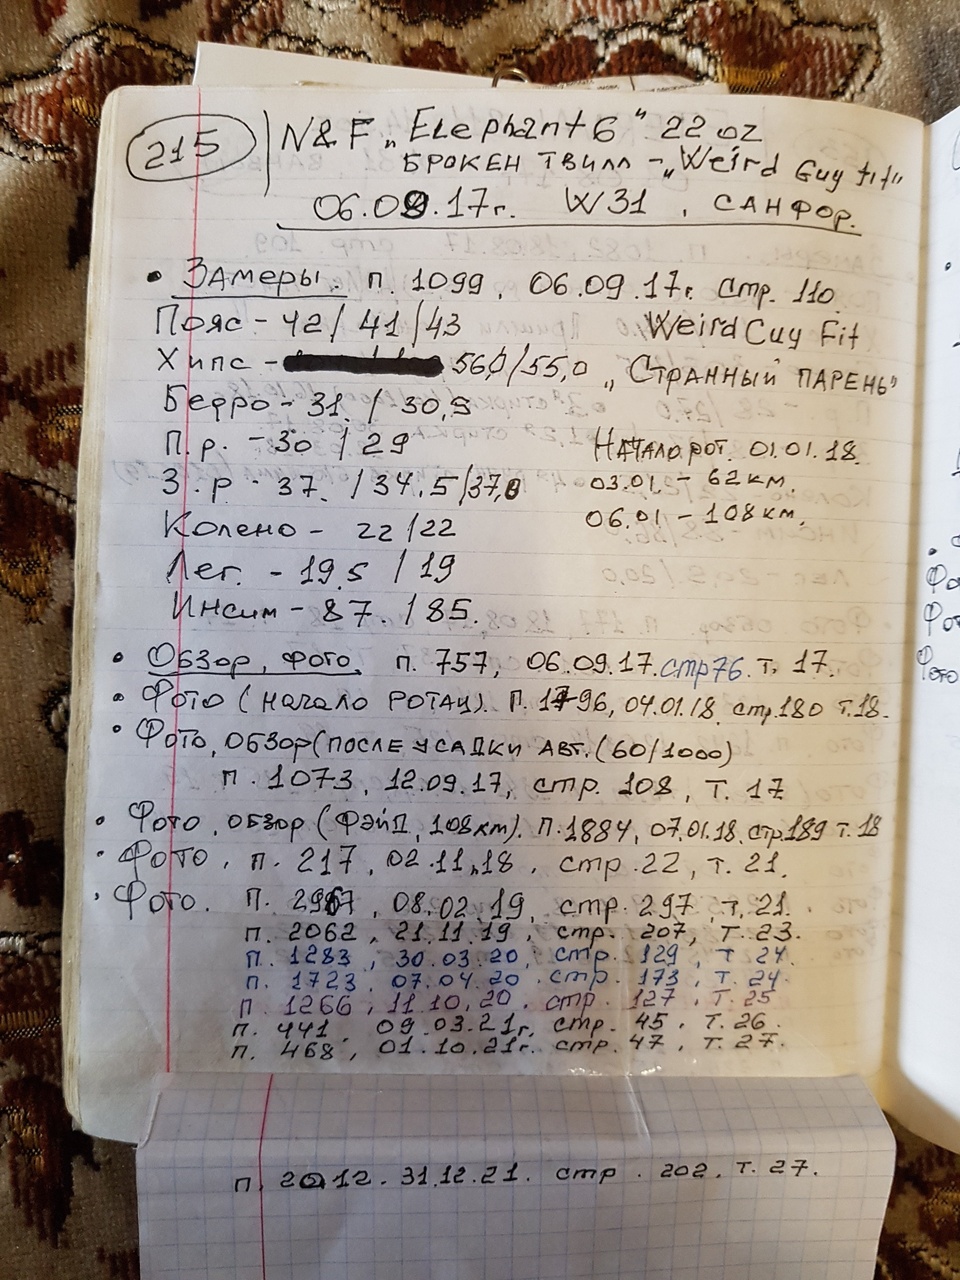 215 N&F „Elephant 6" 22 oz
БРОКЕН ТВИЛЛ - „Weird Guy fit"
06.09.17г. W31 , САНФОР.
• Замеры. п. 1099, 06.09.17г. стр. 110.
Пояс - 42/41/43 Weird Guy Fit
Хипс - 56,0/55,0 „СТРАННЫЙ ПАРЕНЬ"
Бедро - 31 / 30,5
П.р. - 30 / 29 Начало рот. 01.01.18.
З.р - 37. / 34.5/37,0 03.01. - 62 км.
Колено - 22/22 06.01 - 108 км.
Лег. - 19.5 / 19
Инсим - 87. / 85.
• Обзор, фото. п. 757, 06.09.17. стр76. т. 17.
• Фото (начало РОТАЦ). П. 1796, 04.01.18. стр.180 т.18.
• Фото, обзор(после усадки авт. (60/1000)
п. 1073, 12.09.17, стр. 108, т. 17
• Фото, обзор (Фэйд, 108км). П.1884, 07.01.18. стр.189 т.18
• Фото. п. 217, 02.11.18. стр. 22, т. 21.
• Фото. п. 2967, 08.02.19, стр. 297, т. 21.
п. 2062, 21.11.19, стр. 207, т. 23.
п. 1283, 30.03.20, стр. 129, т. 24.
п. 1723, 07.04.20. стр. 173, т. 24.
п. 1266, 11.10.20. стр. 127, т. 25
п. 441, 09.03.21г, стр. 45. т. 26.
п. 468, 01.10.21г. стр. 47, т. 27.
п. 2012. 31.12.21. стр. 202. т. 27.